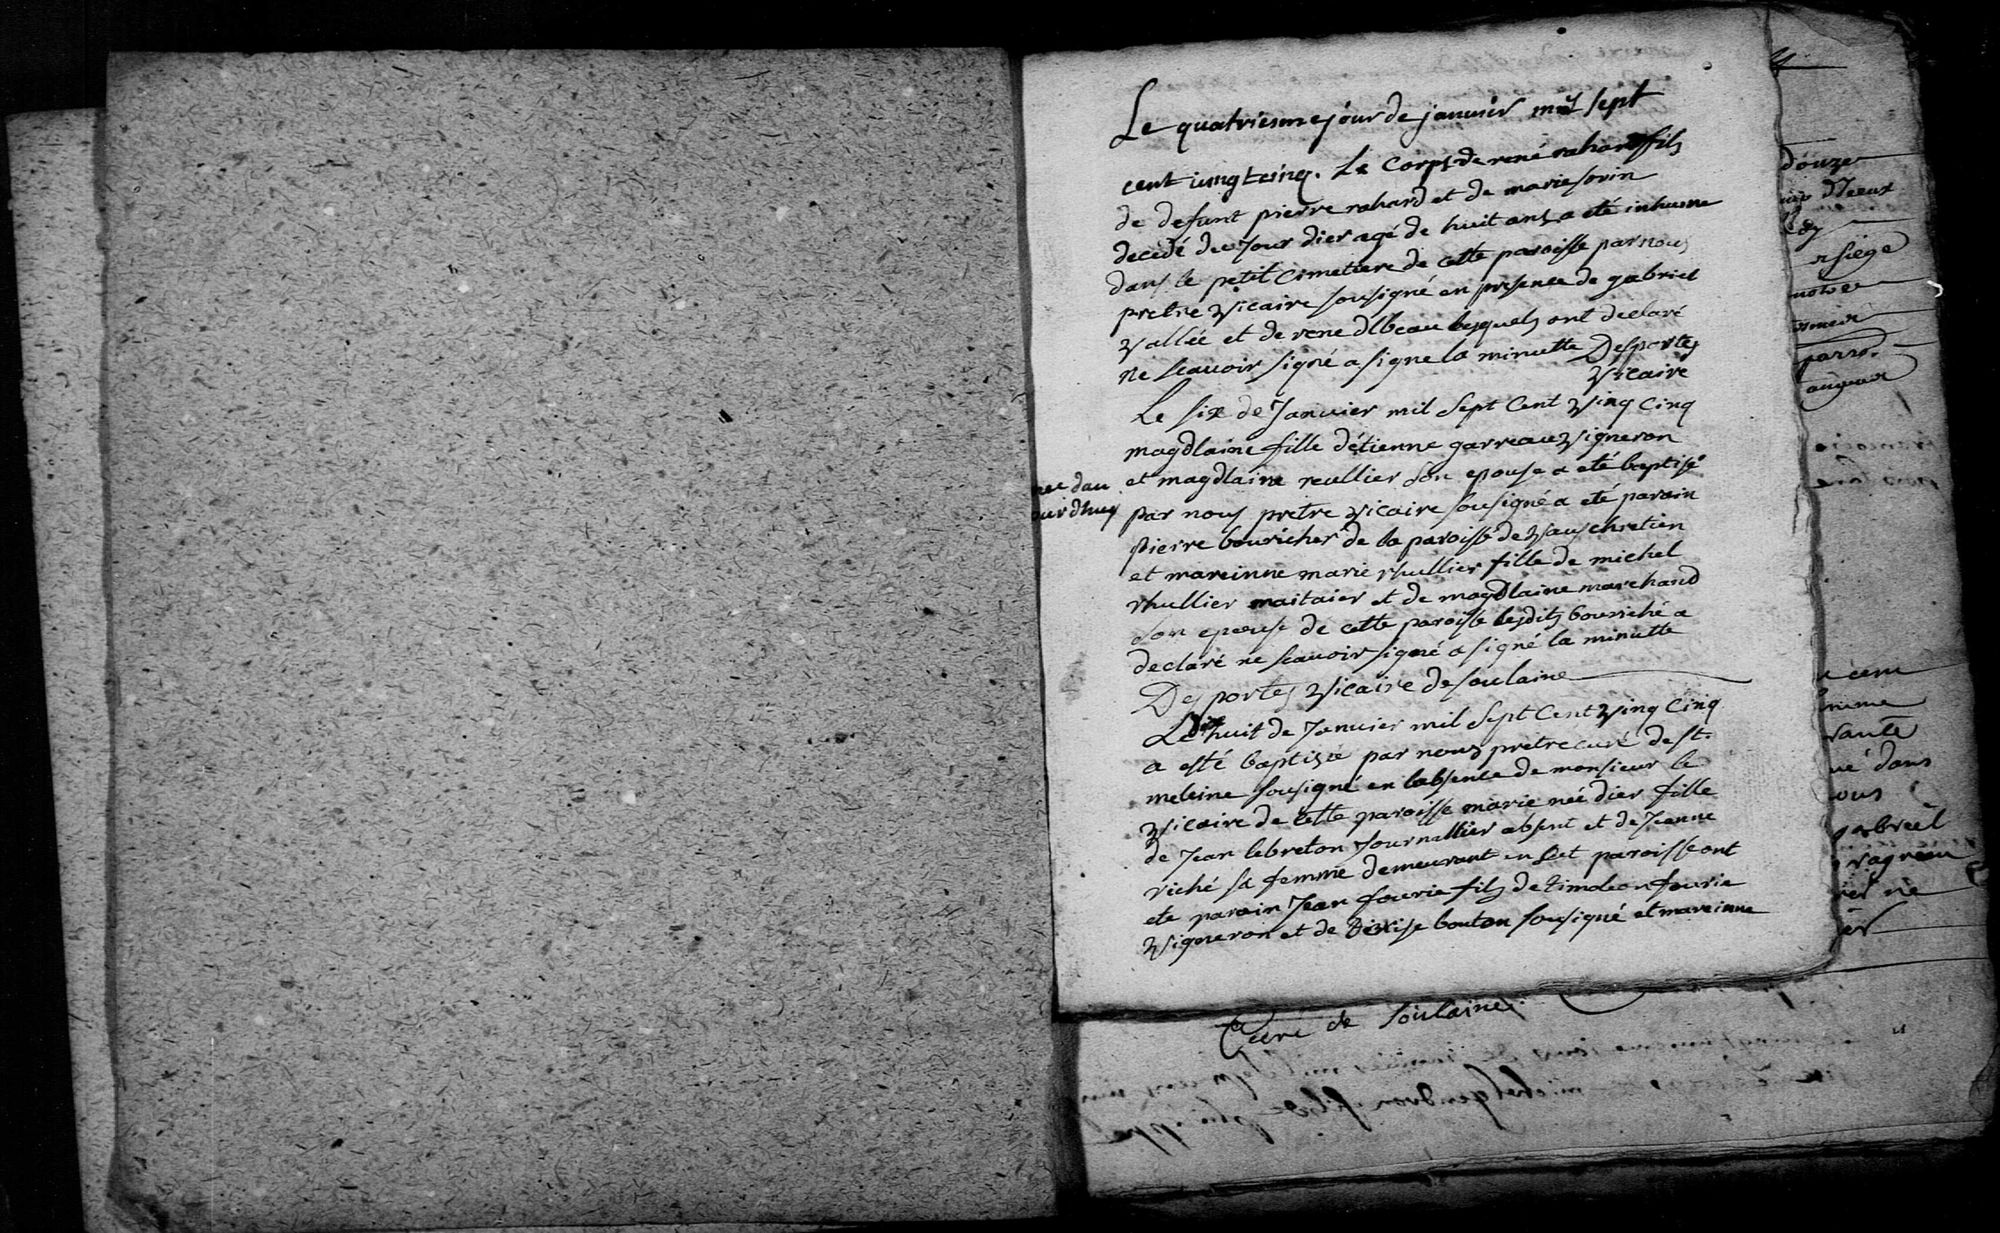 Le quatriesme jour de janvier mil sept
cent vingt cinq. Le corps de rené rahard fils
de defunt pierre rahard et de marie sorin
decedé du jour dier agé de huit ans a eté inhume
dans le petit cimetiere de cette paroisse par nous
pretre vicaire sousigné en presence de gabriel
vallée et de rene albeau lesquels ont declaré
ne scavoir signé a signe la minutte Desportes
vicaire
Le six de Janvier mil sept cent ving cinq
magdlaine fille d'étienne garreau vigneron
et magdlaine reullier son epouse a eté baptisé
par nous pretre vicaire sousigné a eté parain
pierre bouricher de la paroisse de vauchretien
et mareinne marie rhullier fille de michel
rhullier maitaier et de magdlaine marchand
son epouse de cette paroisse lesdits bouriché a
declaré ne scavoir signé a signé la minutte
Desportes vicaire de soulaine
Le huit de Janvier mil sept cent ving cinq
a esté baptisée par nous pretre curé de st
meleine sousigné en l'absence de monsieur le
vicaire de cette paroisse marie née dier fille
de Jean lebreton Journallier absent et de Jeanne
riché sa femme demeurant en set paroisse ont
ete parain Jean fourie fils de timoleon fourie
vigneron et de bouton sousigné et mareinne
née dau
jourdhuy
Curé de Soulaines
douze
siege
gabreil